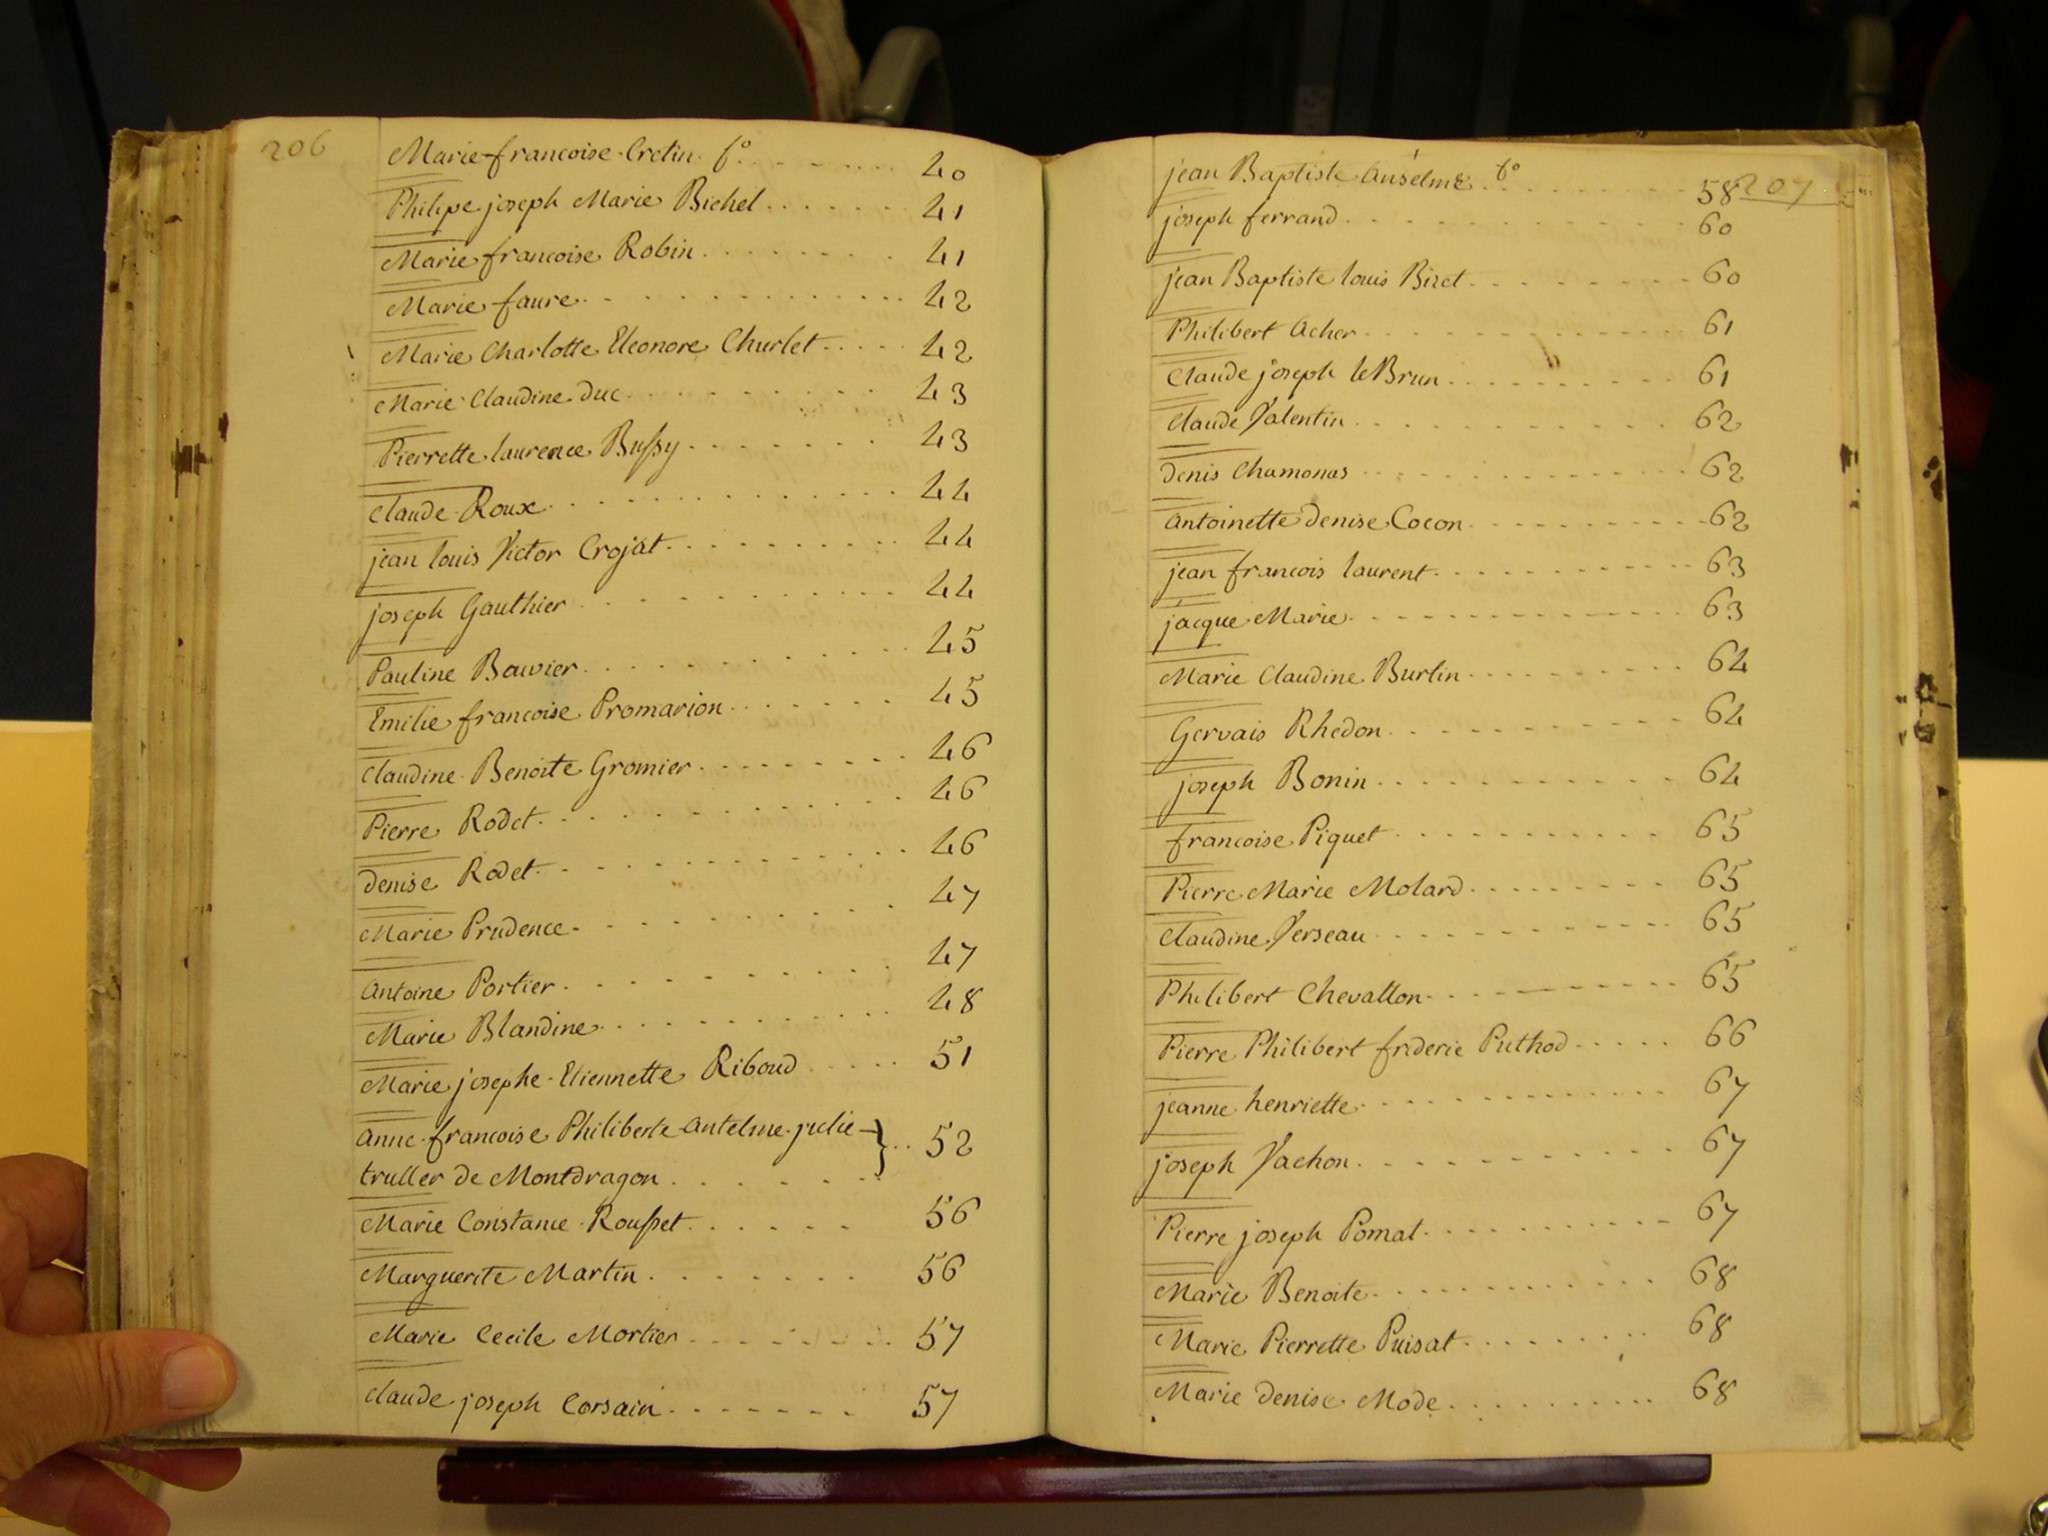 206
Marie francoise Cretin. fo. 40
Philipe joseph Marie Bichel. 41
Marie francoise Robin. 41
Marie faure. 42
Marie Charlotte Eleonore Churlet. 42
Marie Claudine duc. 43
Pierrette laurence Bussy. 43
Claude Roux. 44
jean louis Victor Crojat. 44
joseph Gauthier. 44
Pauline Bouvier. 45
Emilie francoise Promarion. 45
Claudine Benoite Gromier. 46
Pierre Rodet. 46
denise Rodet. 46
Marie Prudence. 47
antoine Portier. 47
Marie Blandine. 48
Marie josephe Etiennette Riboud. 51
anne francoise Philiberte antelme julie } 52
truller de Montdragon.
Marie Constance Rousset. 56
Marguerite Martin. 56
Marie Cecile Mortier. 57
Claude joseph Corsain. 57
207
jean Baptiste anselme. fo. 58
joseph ferrand. 60
jean Baptiste louis Biret. 60
Philibert acher. 61
Claude joseph le Brun. 61
Claude Valentin. 62
denis Chamonas. 62
antoinette denise Cocon. 62
jean francois laurent. 63
jacque Marie. 63
Marie Claudine Burtin. 64
Gervais Rhedon. 64
joseph Bonin. 64
francoise Piquet. 65
Pierre Marie Molard. 65
Claudine Verseau. 65
Philibert Chevallon. 65
Pierre Philibert frideric Puthod. 66
jeanne henriette. 67
joseph Vachon. 67
Pierre joseph Pomat. 67
Marie Benoite. 68
Marie Pierrette Puisat. 68
Marie denise Mode. 68